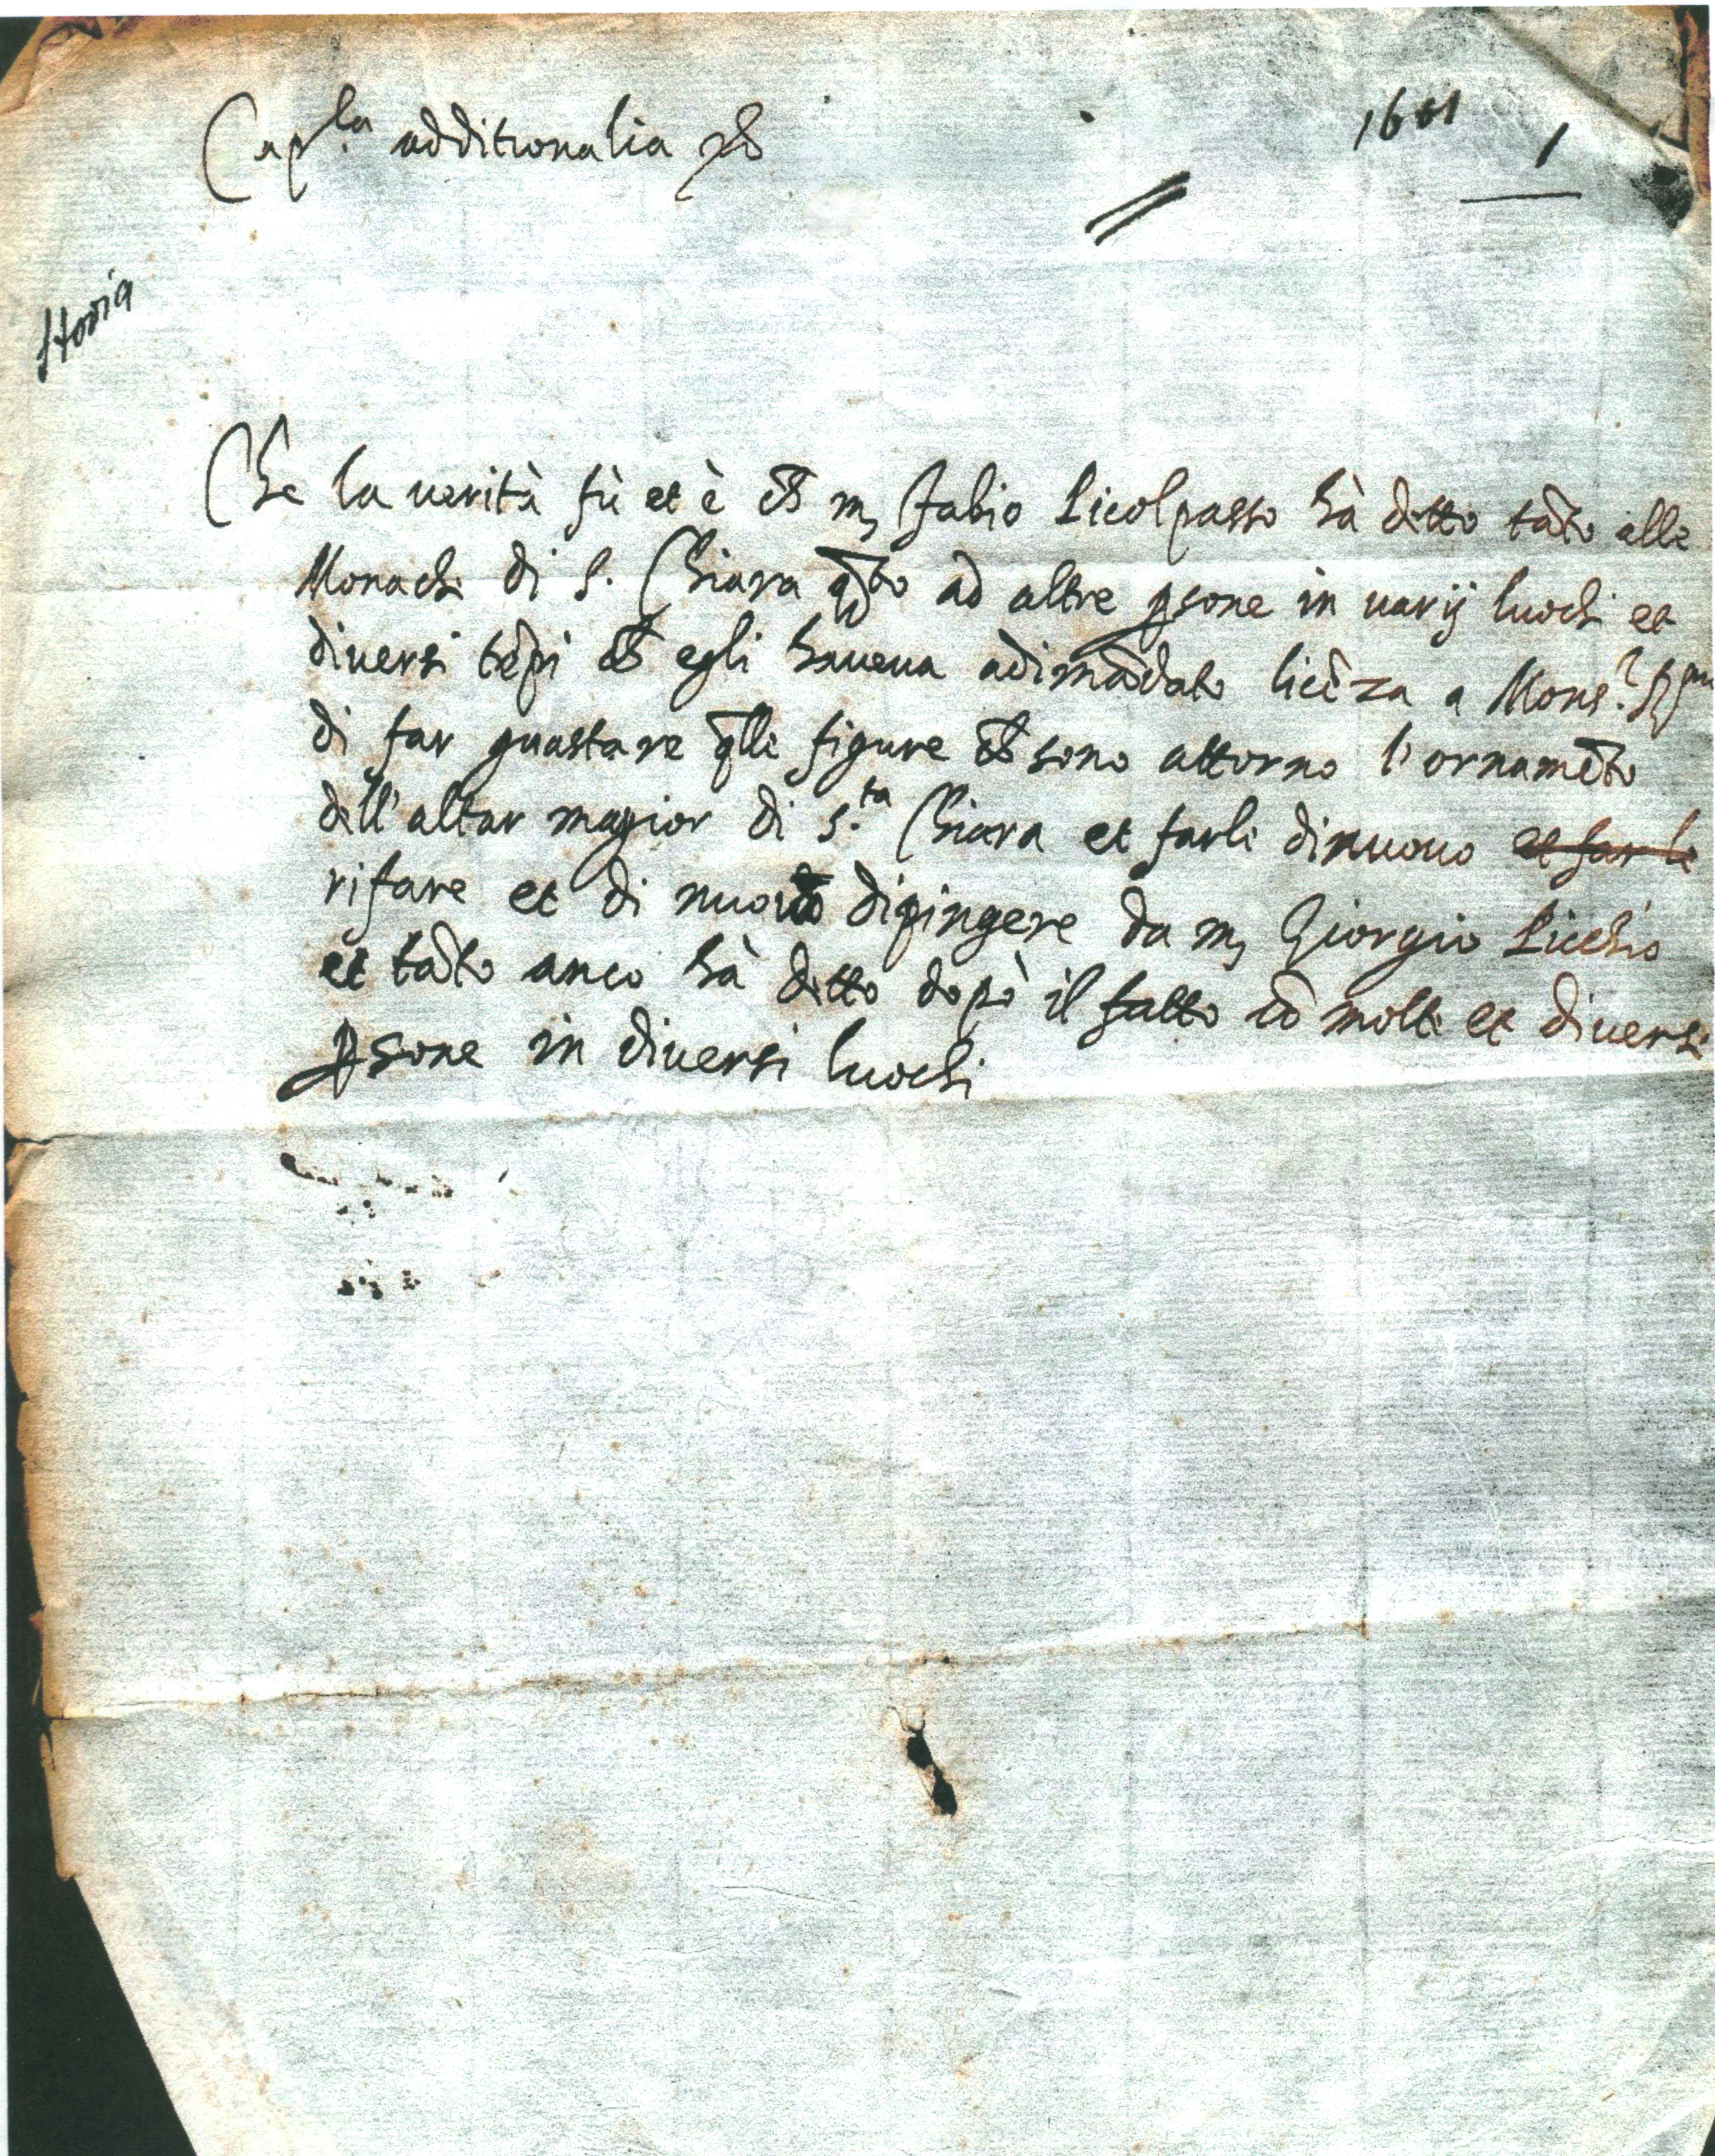 Cap.la additionalia
1601
1
Storia
Che la uerità fù et è ch̄ m, fabio Picolpasso hà ditto tāto alle
Monache di S. Chiara q̄to ad altre ꝑsone in uarij luochi et
diuersi tēpi ch̄ egli haueua adimādato licēza a Mons.r
di far guastare q̄lle figure ch̄ sono attorno l'ornamēto
dell'altar magior di S.ta Chiara et farli dinuouo et far le
rifare et di nuouo dipingere da m, Giorgio Picchio
et tāto anco hà ditto dopò il fatto cō molte et diuerse
ꝑsone in diuersi luochi